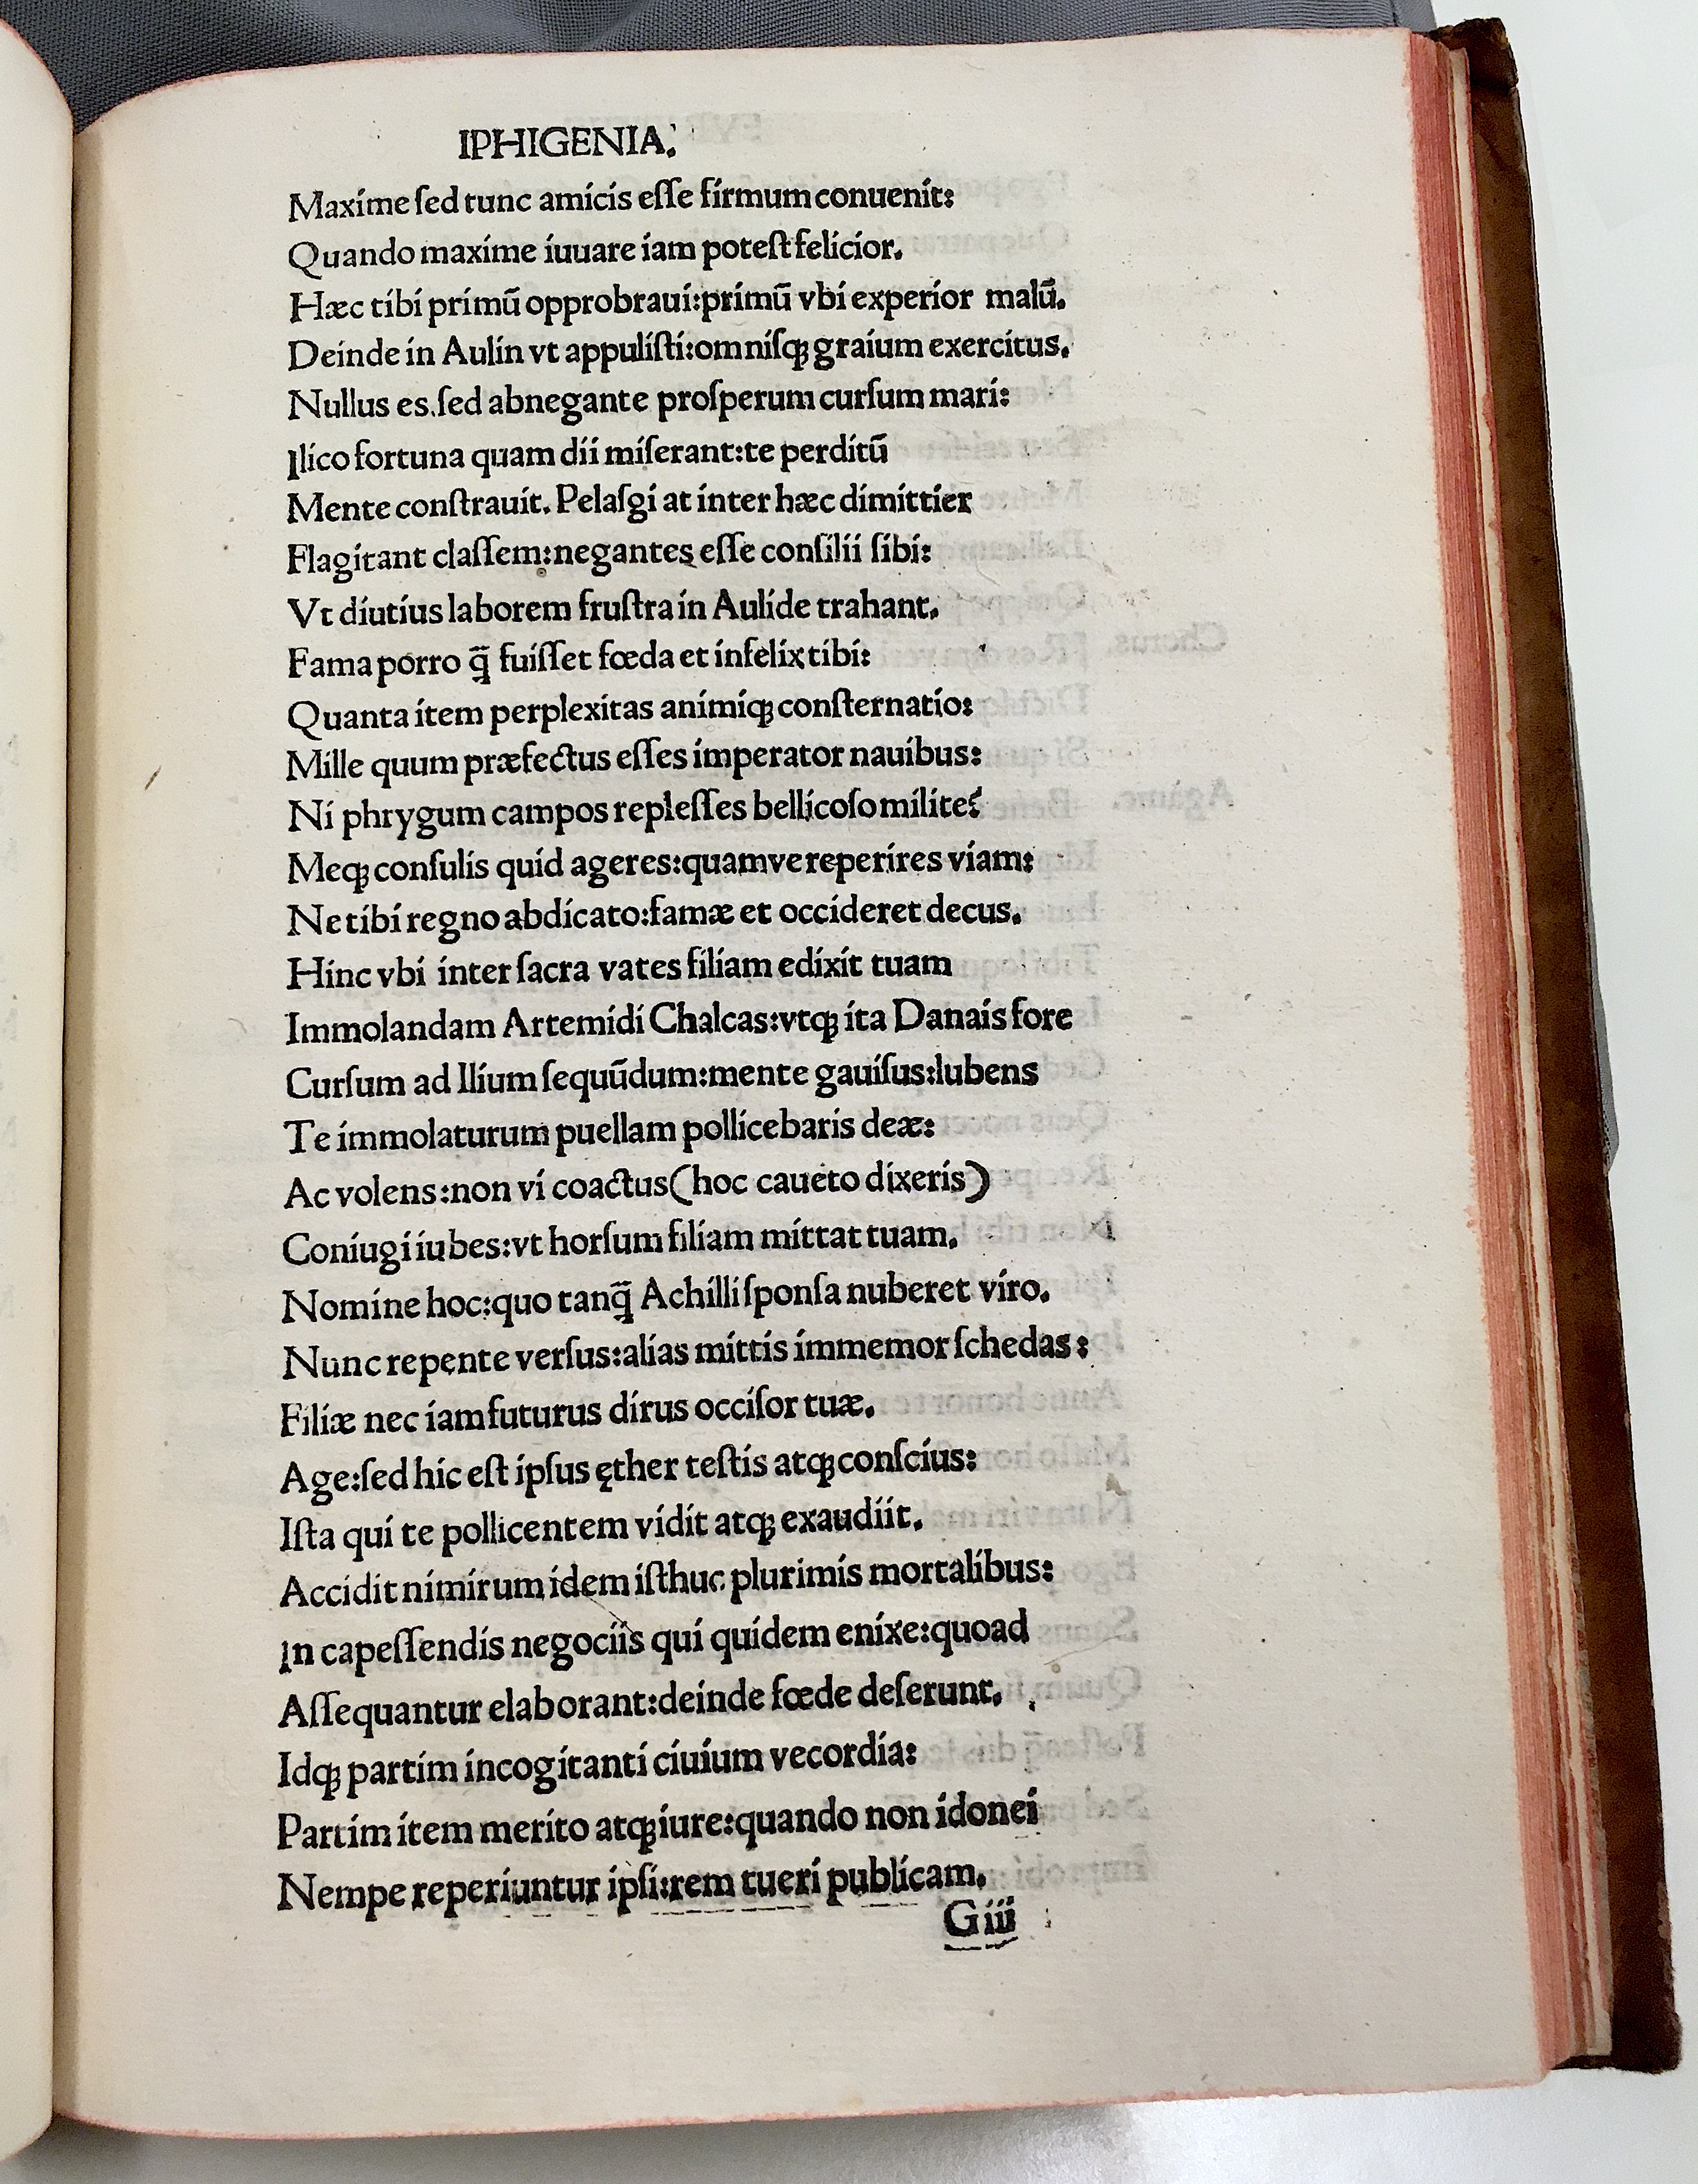 IPHIGENIA.
Maxime ſed tunc amicis eſſe firmum conuenit:
Quando maxime iuuare iam poteſt felicior.
Hæc tibi primū opprobraui:primū vbi experior malū.
Deinde in Aulin vt appuliſti:omniſqꝫ graium exercitus.
Nullus es.ſed abnegante proſperum curſum mari:
Ilico fortuna quam dii miſerant:te perditū
Mente conſtrauit. Pelaſgi at inter hæc dimittier
Flagitant claſſem:negantes eſſe conſilii ſibi:
Vt diutius laborem fruſtra in Aulide trahant.
Fama porro q̄ fuiſſet fœda et infelix tibi:
Quanta item perplexitas animiqꝫ conſternatio:
Mille quum præfectus eſſes imperator nauibus:
Ni phrygum campos repleſſes bellicoſo milite?
Meqꝫ conſulis quid ageres:quamve reperires viam:
Ne tibi regno abdicato:famæ et occideret decus.
Hinc vbi inter ſacra vates filiam edixit tuam
Immolandam Artemidi Chalcas:vtqꝫ ita Danais fore
Curſum ad Ilium ſequūdum:mente gauiſus:lubens
Te immolaturum puellam pollicebaris deæ:
Ac volens:non vi coactus(hoc caueto dixeris)
Coniugi iubes:vt horſum filiam mittat tuam.
Nomine hoc:quo tanq̄ Achilli ſponſa nuberet viro.
Nunc repente verſus:alias mittis immemor ſchedas:
Filiæ nec iam futurus dirus occiſor tuæ.
Age:ſed hic eſt ipſus ęther teſtis atqꝫ conſcius:
Iſta qui te pollicentem vidit atqꝫ exaudiit.
Accidit nimirum idem iſthuc plurimis mortalibus:
In capeſſendis negociis qui quidem enixe:quoad
Aſſequantur elaborant:deinde fœde deſerunt.
Idqꝫ partim incogitanti ciuium vecordia:
Partim item merito atqꝫ iure:quando non idonei
Nempe reperiuntur ipſi:rem tueri publicam.
G iii